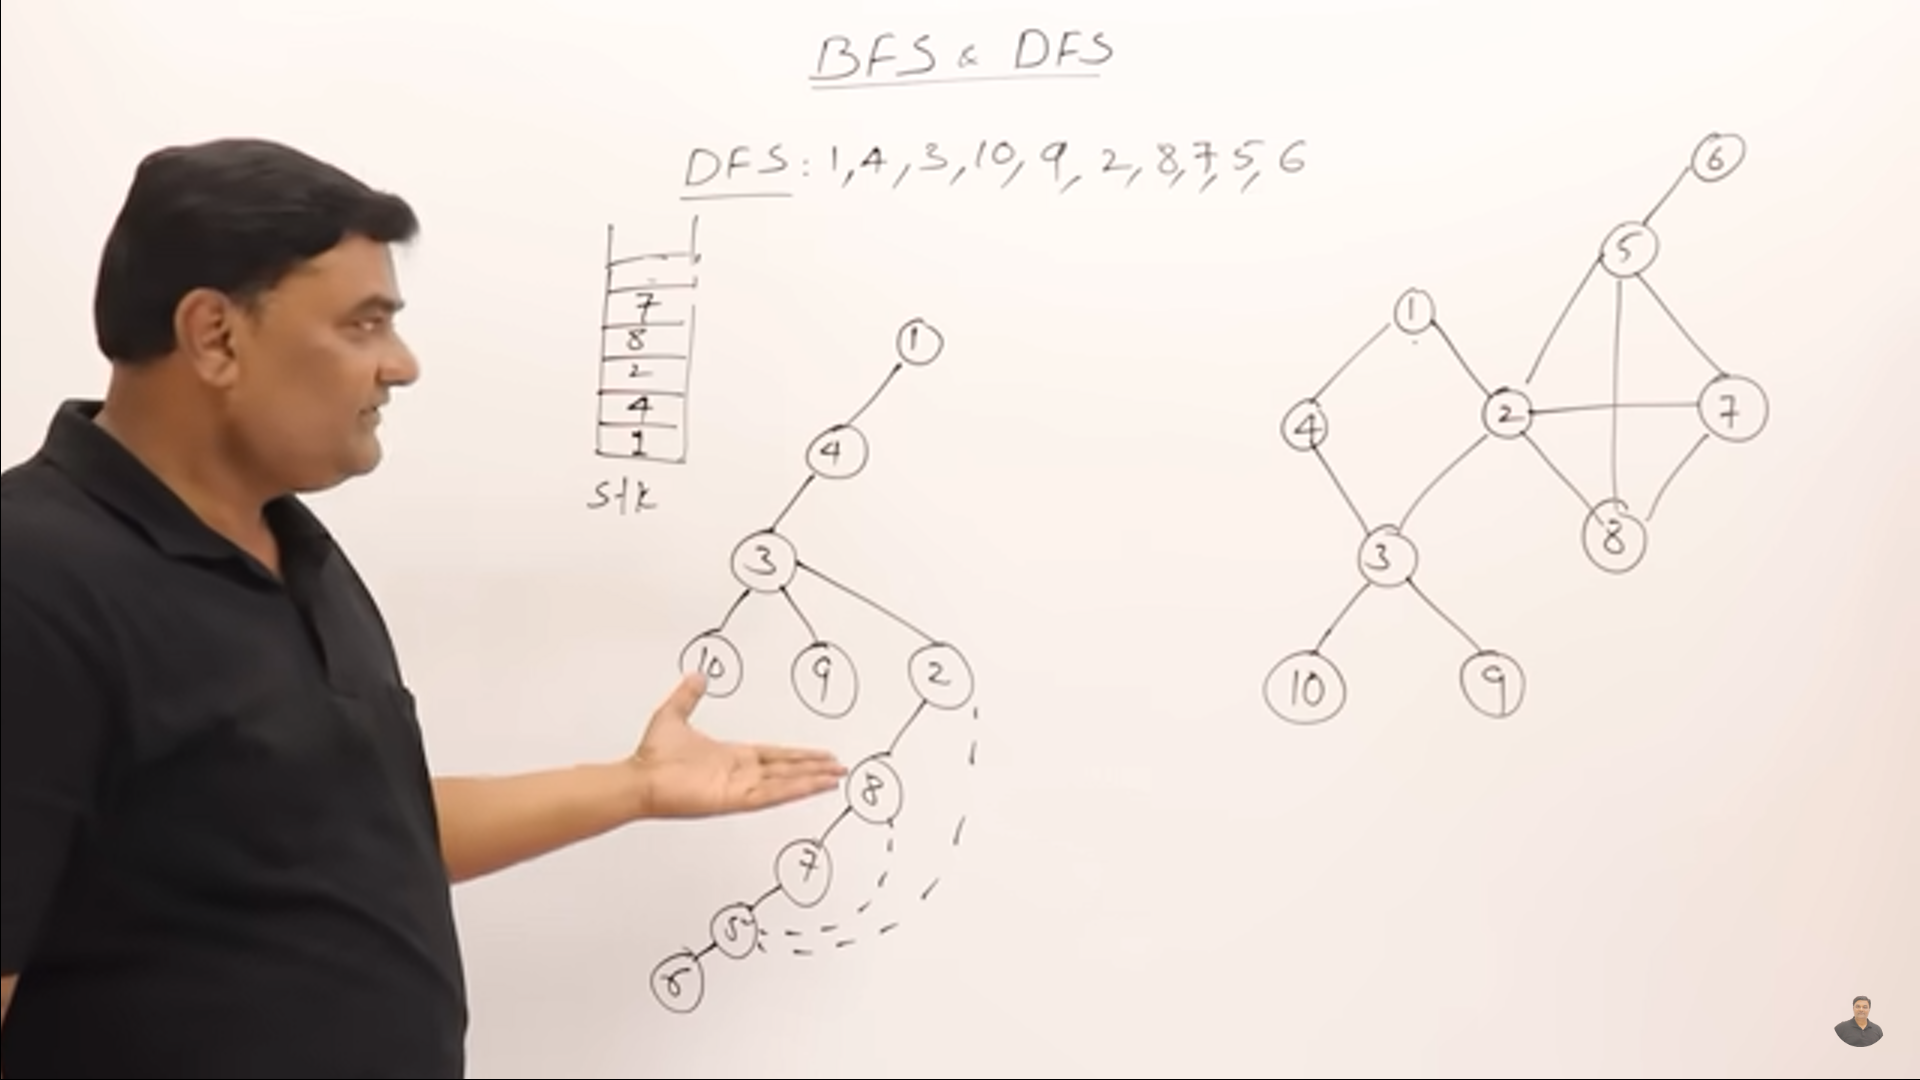 BFS & DFS
DFS: 1,4,3,10,9,2,8,7,5,6
7
8
2
4
1
stk
1
4
3
10 9 2
8
7
5
6
6
5
1
4 2 7
3 8
10 9